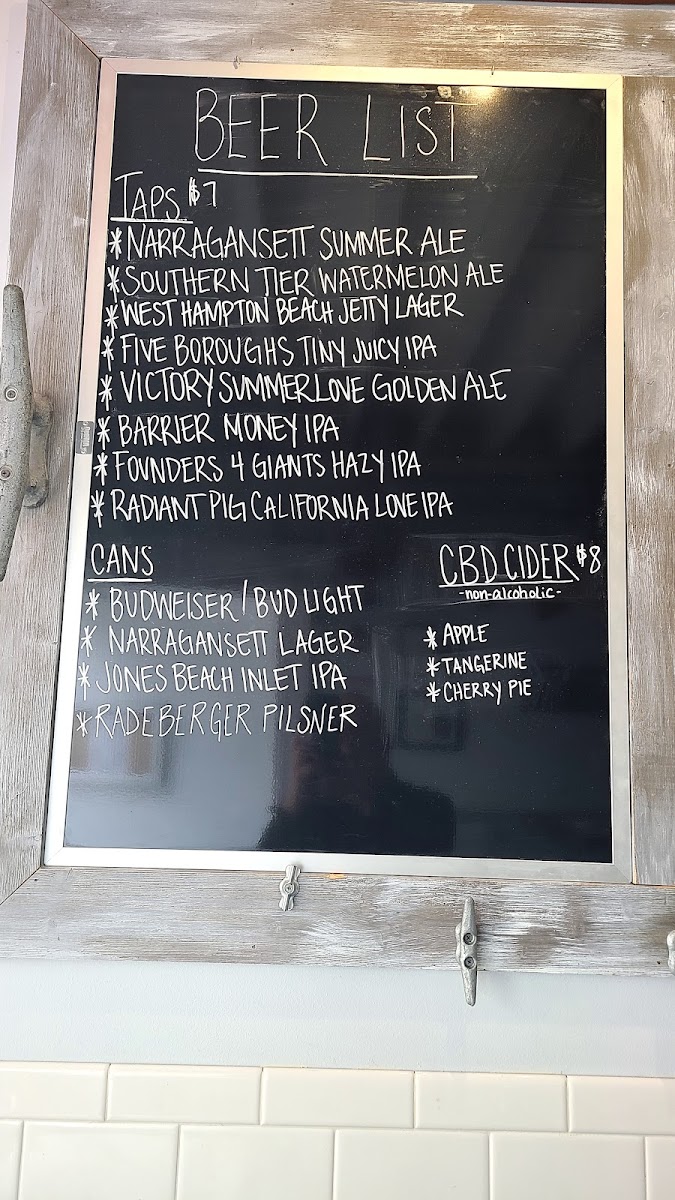 BEER LIST
TAPS $7
*NARRAGANSETT SUMMER ALE
*SOUTHERN TIER WATERMELON ALE
*WEST HAMPTON BEACH JETTY LAGER
*FIVE BOROUGHS TINY JUICY IPA
*VICTORY SUMMERLOVE GOLDEN ALE
*BARRIER MONEY IPA
*FOUNDERS 4 GIANTS HAZY IPA
*RADIANT PIG CALIFORNIA LOVE IPA
CANS
*BUDWEISER/BUD LIGHT
*NARRAGANSETT LAGER
*JONES BEACH INLET IPA
*RADEBERGER PILSNER
CBD CIDER $8
-non-alcoholic-
*APPLE
*TANGERINE
*CHERRY PIE